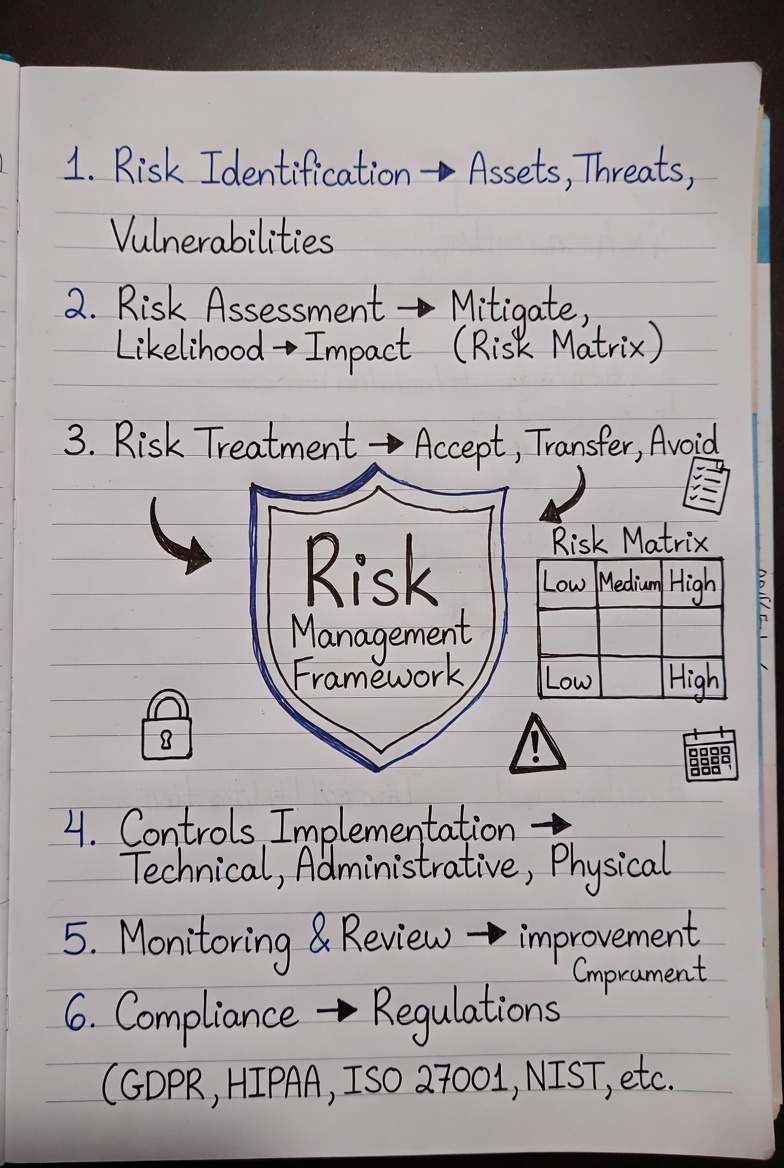 1. Risk Identification → Assets, Threats,
Vulnerabilities
2. Risk Assessment → Mitigate,
Likelihood → Impact (Risk Matrix)
3. Risk Treatment → Accept, Transfer, Avoid
Risk
Management
Framework
Risk Matrix
Low Medium High
Low High
4. Controls Implementation →
Technical, Administrative, Physical
5. Monitoring & Review → improvement
Cmprument
6. Compliance → Regulations
(GDPR, HIPAA, ISO 27001, NIST, etc.